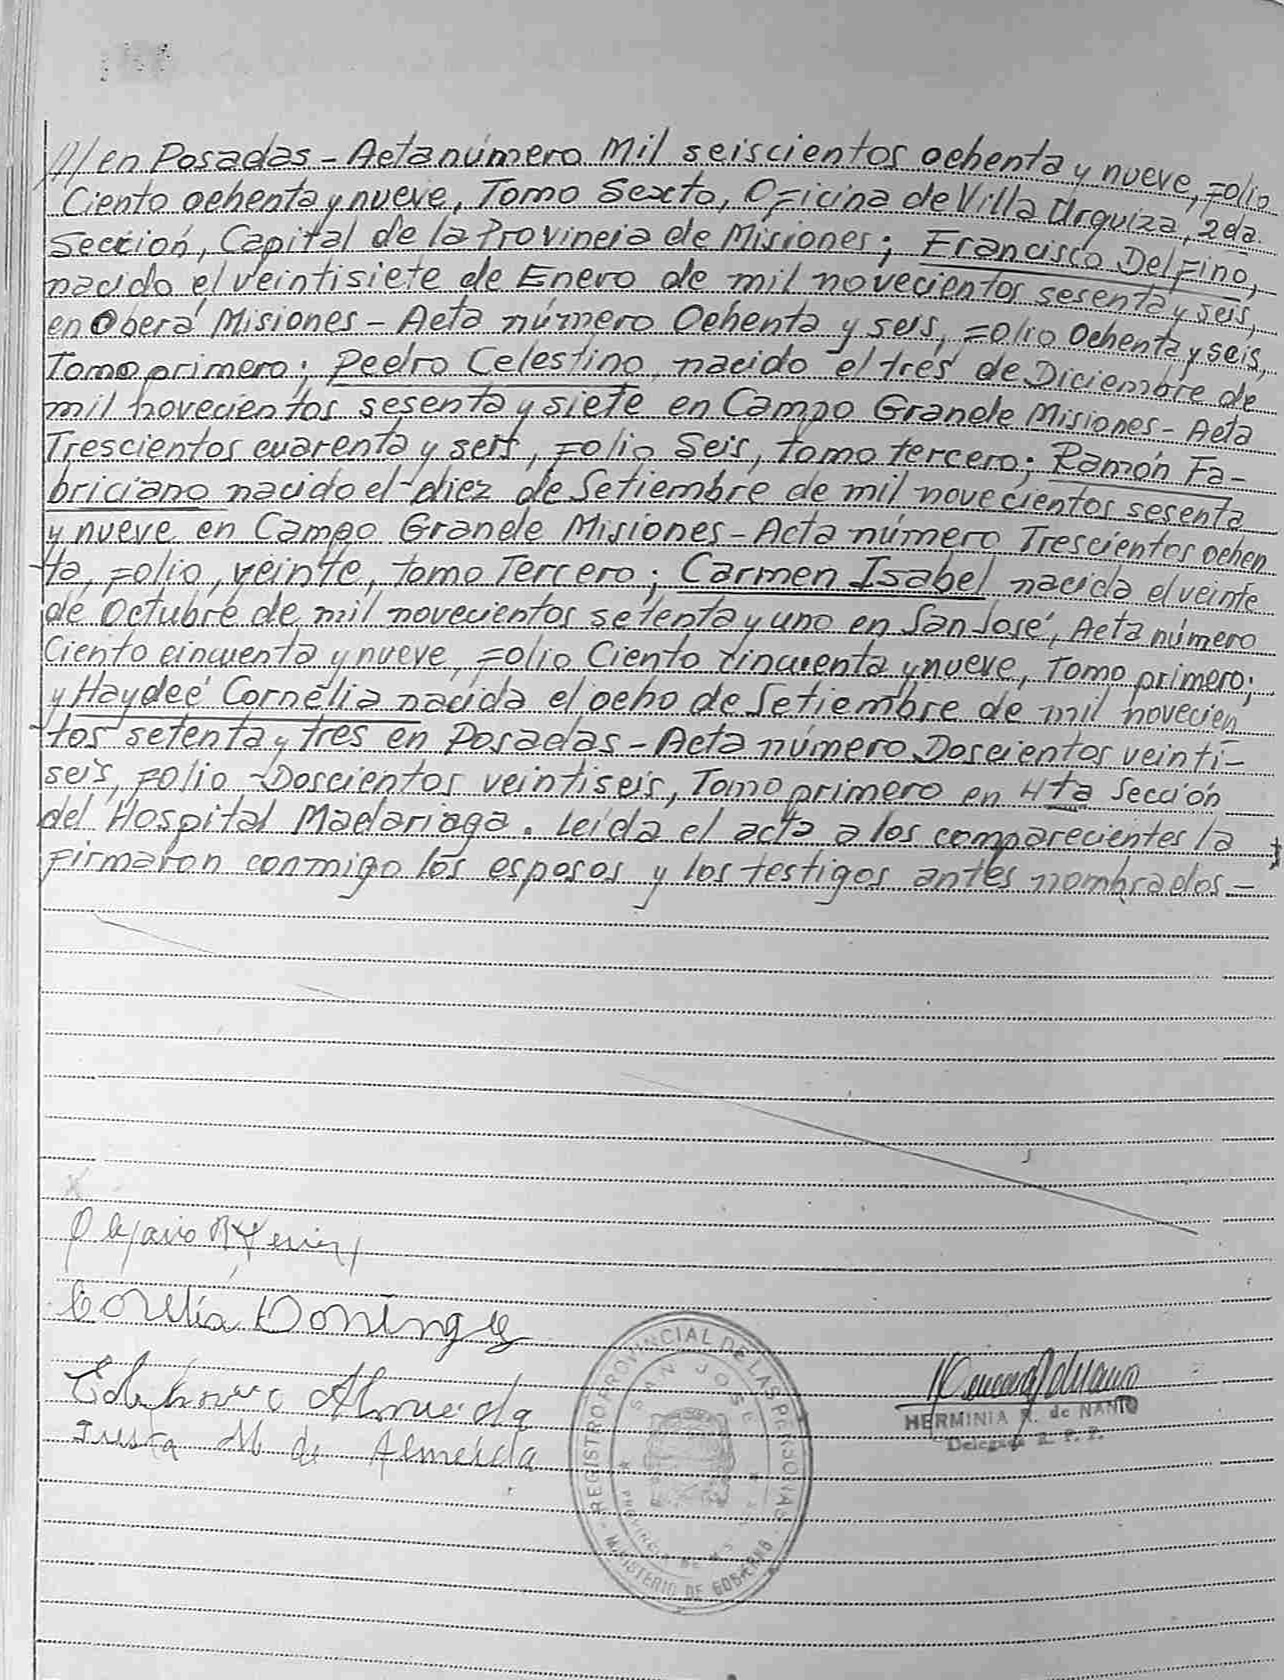 ///en Posadas - Acta número Mil seiscientos ochenta y nueve, Folio
Ciento ochenta y nueve, Tomo Sexto, Oficina de Villa Urquiza, 2da.
Sección, Capital de la Provincia de Misiones; Francisco Delfino,
nacido el veintisiete de Enero de mil novecientos sesenta y seis,
en Oberá Misiones - Acta número Ochenta y seis, Folio Ochenta y seis,
Tomo primero; Pedro Celestino nacido el tres de Diciembre de
mil novecientos sesenta y siete en Campo Grande Misiones - Acta
Trescientos cuarenta y seis, Folio Seis, tomo tercero; Ramón Fa-
briciano nacido el diez de Setiembre de mil novecientos sesenta
y nueve en Campo Grande Misiones - Acta número Trescientos ochen
ta, Folio, veinte, tomo Tercero; Carmen Isabel nacida el veinte
de Octubre de mil novecientos setenta y uno en San José, Acta número
Ciento cincuenta y nueve, Folio Ciento cincuenta y nueve, Tomo primero;
y Haydeé Cornelia nacida el ocho de Setiembre de mil novecien
tos setenta y tres en Posadas - Acta número Doscientos veinti-
seis, Folio Doscientos veintiseis, Tomo primero en 4ta Sección
del Hospital Madariaga. Leída el acta a los comparecientes la
firmaron conmigo los esposos y los testigos antes nombrados -
Almeida
Justa M de Almeida
REGISTRO PROVINCIAL DE LAS PERSONAS
SAN JOSE
PROVINCIA DE MS
MINISTERIO DE GOBIERNO
HERMINIA de NANIO
Delegada R. P. P.